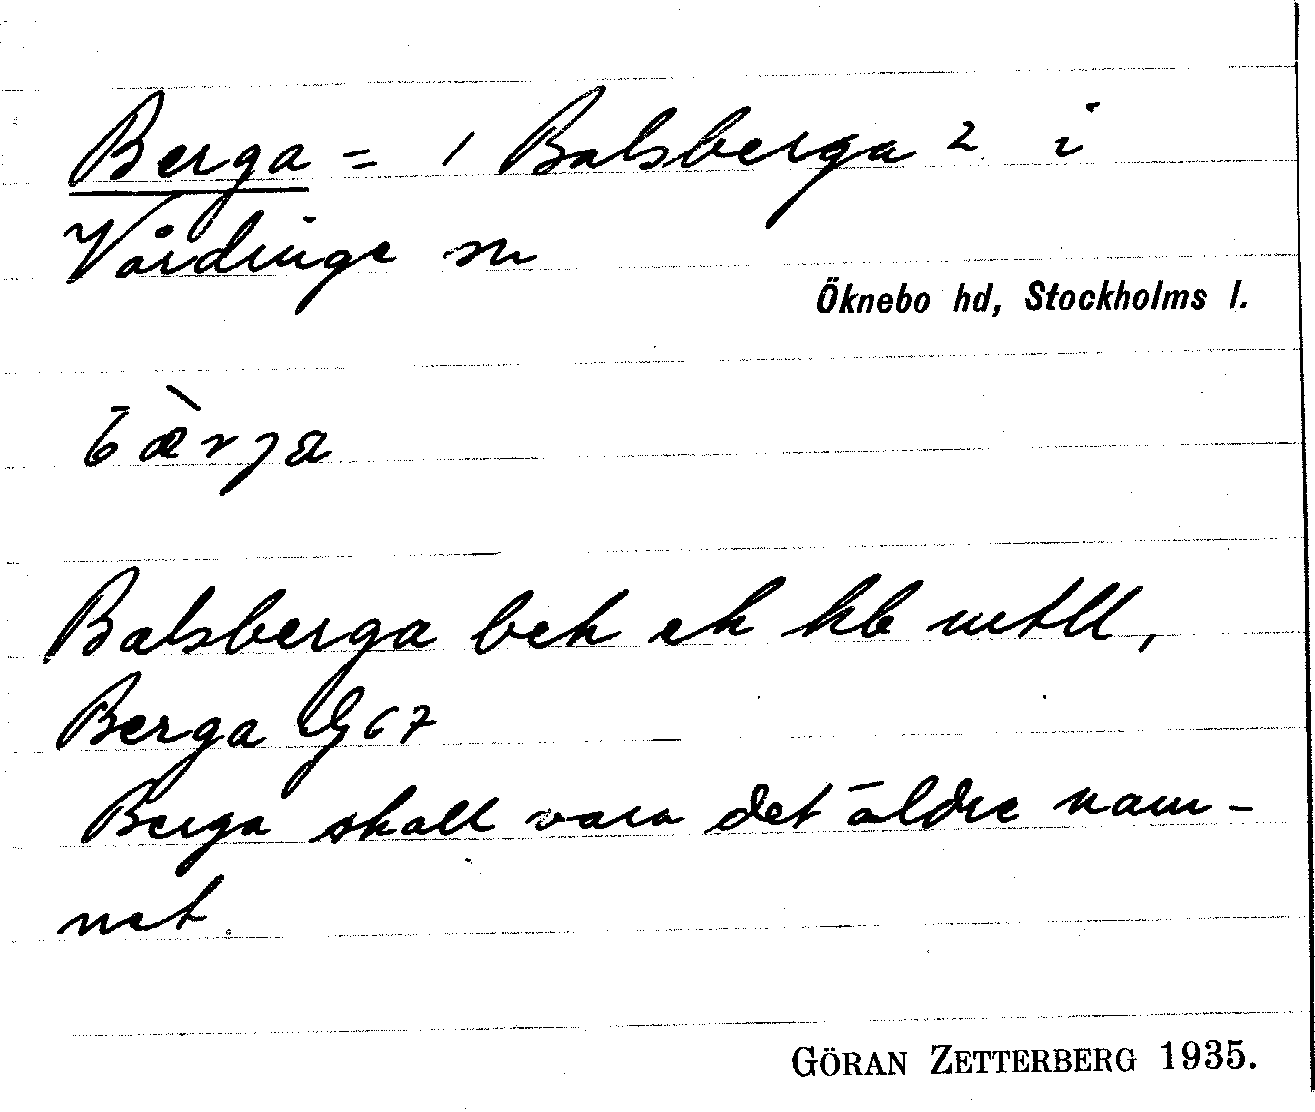 Berga = 1 Balsberga 2 i
Vårdinge sn
Öknebo hd, Stockholms l.
bær̀ja
Balsberga bek ek kb mtll,
Berga G 67
Berga skall vara det äldre nam-
net.
GÖRAN ZETTERBERG 1935.